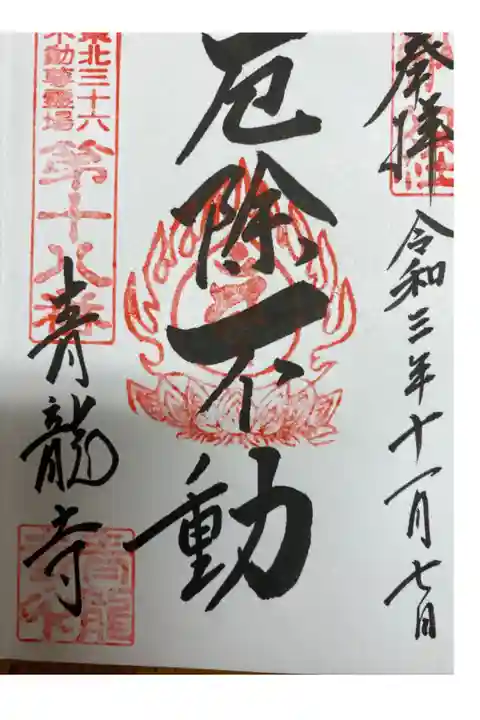 奉拝
令和三年十一月七日
厄除不動
東北三十六
不動尊霊場
第十八番
青龍寺